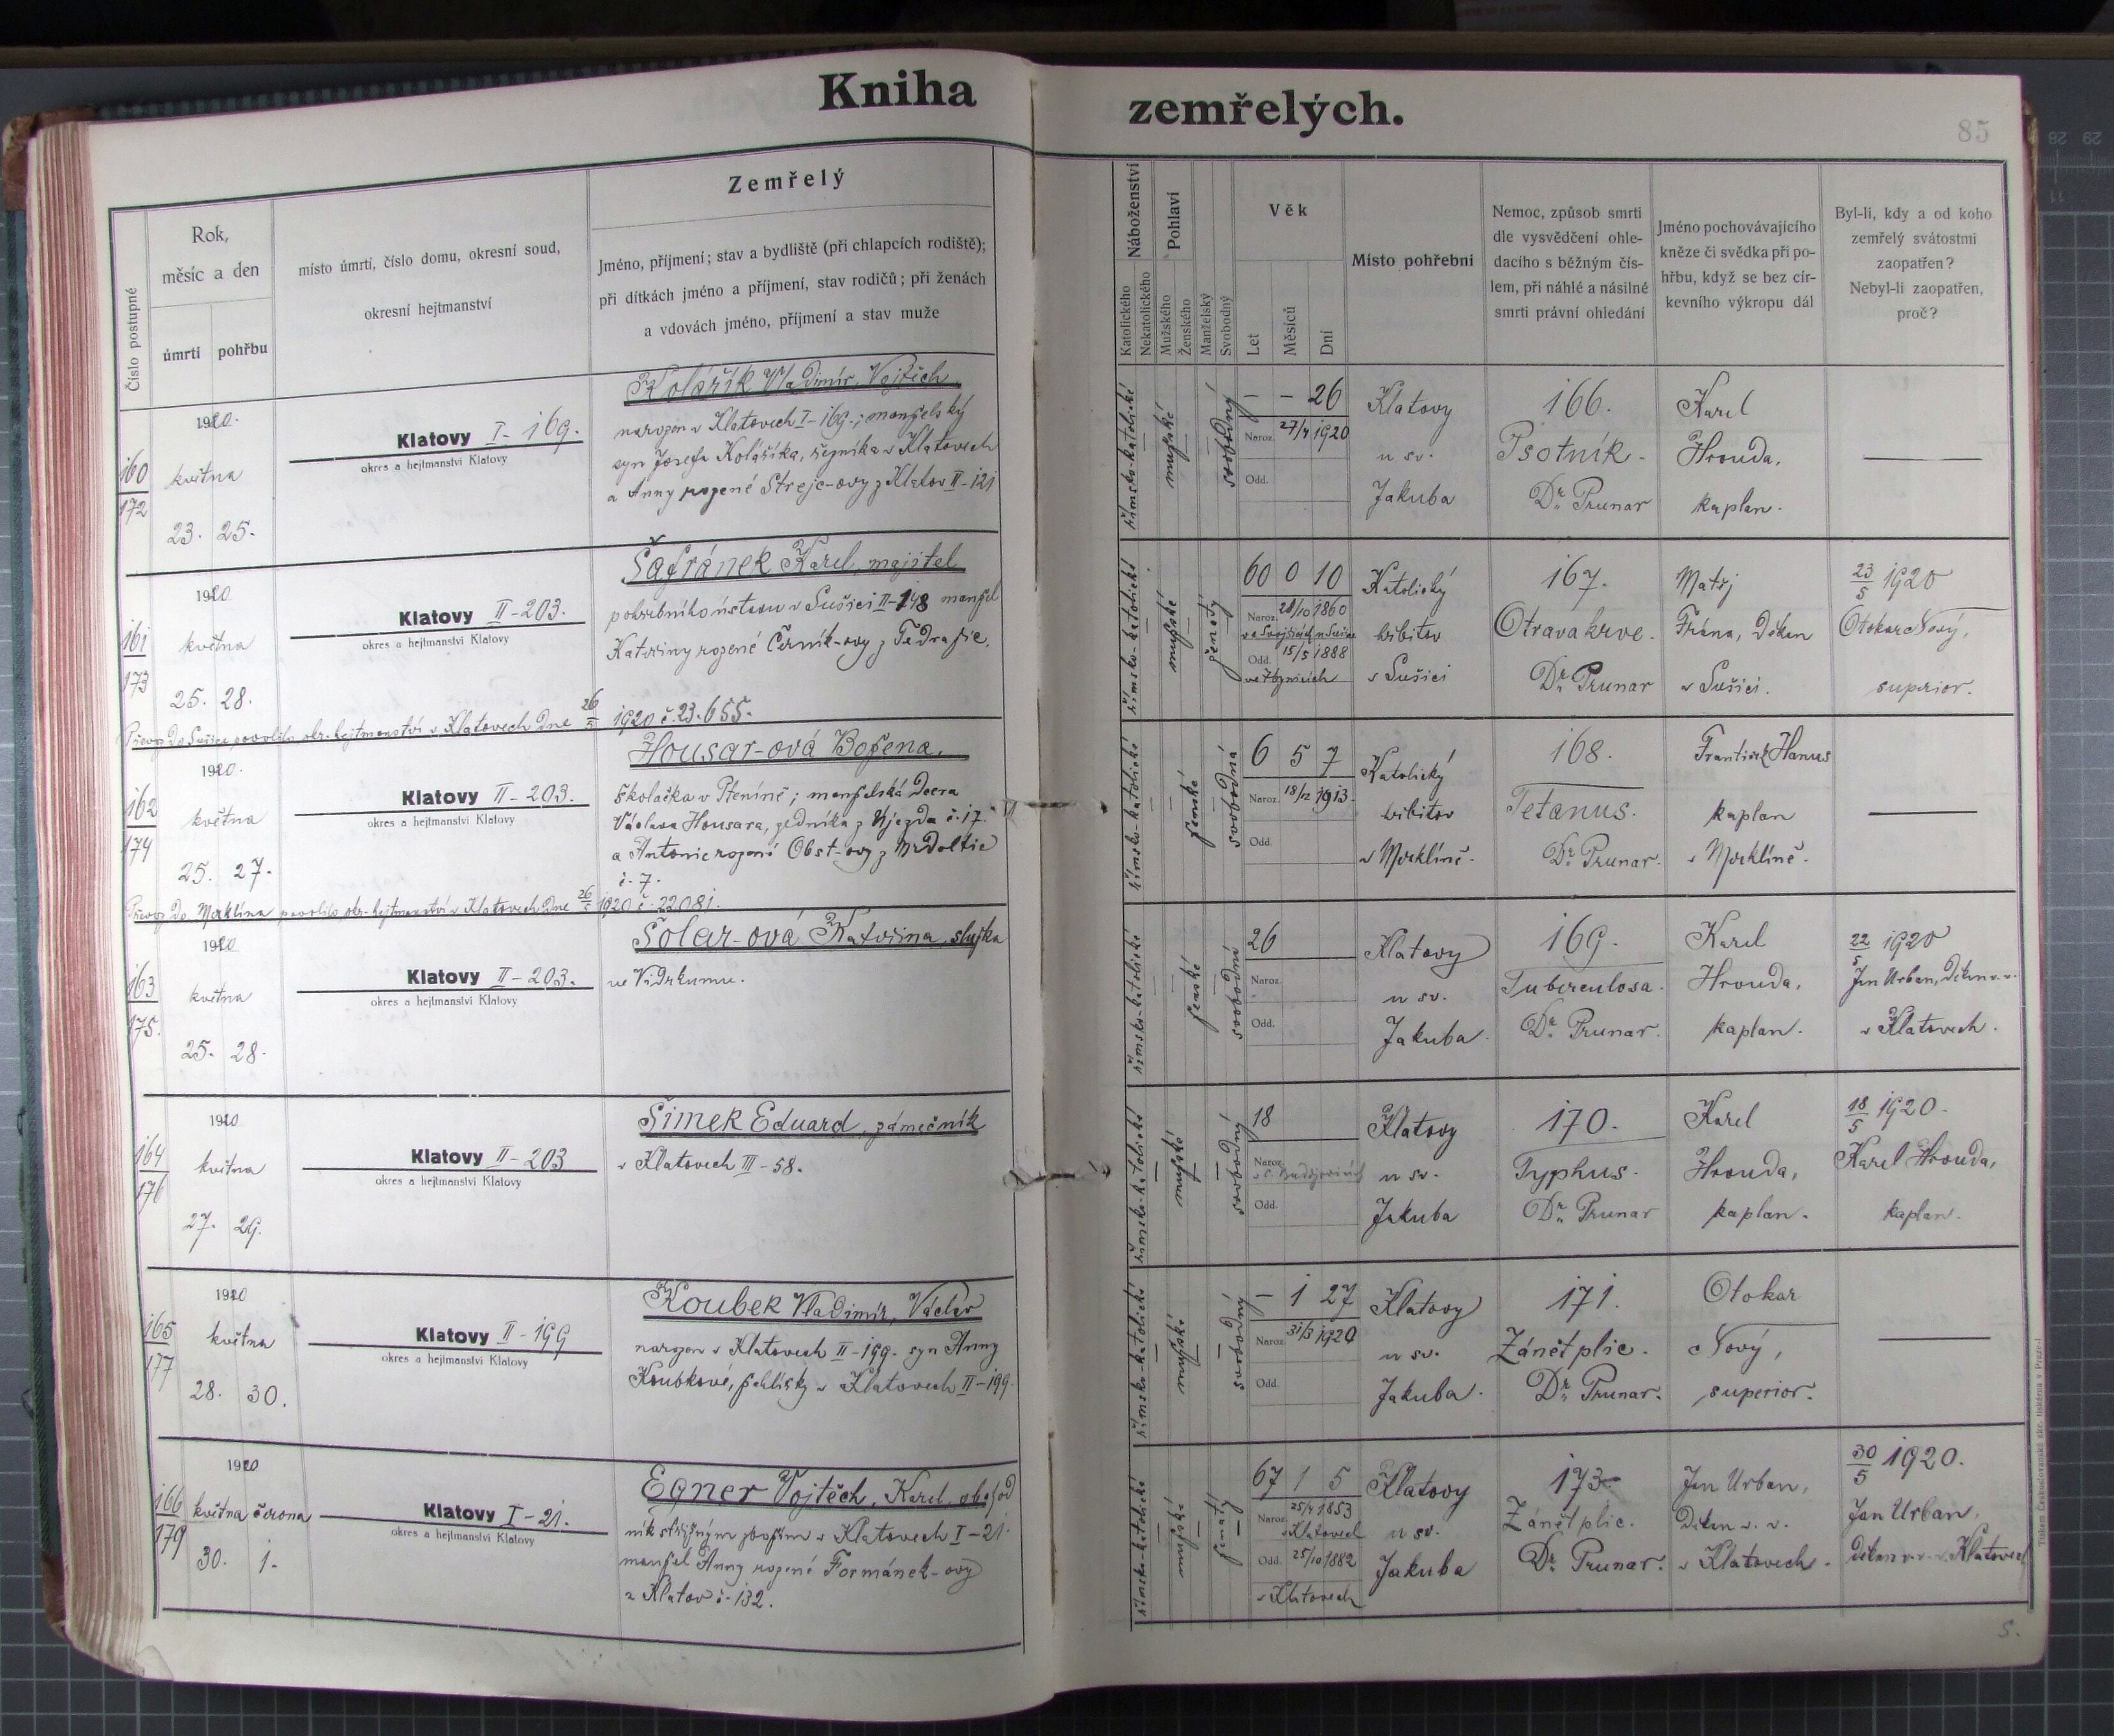 Kniha
zemřelých.
85
Číslo postupné
Rok,
měsíc a den
úmrtí
pohřbu
místo úmrtí, číslo domu, okresní soud,
okresní hejtmanství
Zemřelý
Jméno, příjmení; stav a bydliště (při chlapcích rodiště);
při dítkách jméno a příjmení, stav rodičů; při ženách
a vdovách jméno, příjmení a stav muže
Náboženství
Katolického
Nekatolického
Pohlaví
Mužského
Ženského
Manželský
Svobodný
Věk
Let
Měsíců
Dní
Místo pohřební
Nemoc, způsob smrti
dle vysvědčení ohle-
dacího s běžným čís-
lem, při náhlé a násilné
smrti právní ohledání
Jméno pochovávajícího
kněze či svědka při po-
hřbu, když se bez cír-
kevního výkropu dál
Byl-li, kdy a od koho
zemřelý svátostmi
zaopatřen?
Nebyl-li zaopatřen,
proč?
160
172
1920.
května
23. 25.
Klatovy I-169.
okres a hejtmanství Klatovy
Kolářík Vladimír, Vojtěch,
narozen v Klatovech I-169.; manželský
syn Josefa Kolaříka, řezníka v Klatovech
a Anny rozené Strejc-ovy z Klatov II-121
římsko-katolické
mužské
svobodný
- - 26
Naroz. 27/4 1920
Odd.
Klatovy
u sv.
Jakuba
166.
Psotník.
Dr. Prunar
Karel
Hrouda,
kaplan.
161
173
1920
května
25. 28.
Klatovy II-203.
okres a hejtmanství Klatovy
Šafránek Karel, majitel
pohřebního ústavu v Sušici II-148 manžel
Kateřiny rozené Černík-ovy z Tedražic.
Převoz do Sušice povolilo okr. hejtmanství v Klatovech dne 26/5 1920 č. 23.655.
římsko-katolické
mužské
ženatý
60 0 10
Naroz. 1860
Odd. 15/5 1888
Katolický
hřbitov
v Sušici
167.
Otrava krve.
Dr. Prunar
Matěj
Frána, děkan
v Sušici.
23/5 1920
Otokar Nový,
superior.
162
174
1920.
května
25. 27.
Klatovy II-203.
okres a hejtmanství Klatovy
Housar-ová Božena,
školačka v Pteníně; manželská dcera
Václava Housara, zedníka z Újezda č. 17. VI
a Antonie rozené Obst-ovy z Vrdoltic
č. 7.
Převoz do Merklína povolilo okr. hejtmanství v Klatovech dne 26/5 1920 č. 22081.
římsko-katolické
ženské
svobodná
6 5 7
Naroz. 18/12 1913.
Odd.
Katolický
hřbitov
v Merklíně.
168.
Tetanus.
Dr. Prunar.
František Hanus
kaplan
v Merklíně.
163
175.
1920
května
25. 28.
Klatovy II-203.
okres a hejtmanství Klatovy
Šolar-ová Kateřina, služka
ve Vidrkumu.
římsko-katolické
ženské
svobodná
26
Naroz.
Odd.
Klatovy
u sv.
Jakuba.
169.
Tuberculosa.
Dr. Prunar.
Karel
Hrouda,
kaplan.
22/5 1920
Jan Urban, děkan v. v.
v Klatovech.
164
176
1920
května
27. 29.
Klatovy II-203
okres a hejtmanství Klatovy
Šimek Eduard, zámečník
v Klatovech III-58.
římsko-katolické
mužské
svobodný
18
Naroz.
v Č. Budějovicích
Odd.
Klatovy
u sv.
Jakuba
170.
Typhus.
Dr. Prunar
Karel
Hrouda,
kaplan.
18/5 1920.
Karel Hrouda,
kaplan.
165
177
1920
května
28. 30.
Klatovy II-199
okres a hejtmanství Klatovy
Koubek Vladimír, Václav
narozen v Klatovech II-199. syn Anny
Koubkové, žehlířky v Klatovech II-199.
římsko-katolické
mužské
svobodný
- 1 27
Naroz. 31/3 1920
Odd.
Klatovy
u sv.
Jakuba.
171.
Zánět plic.
Dr. Prunar.
Otokar
Nový,
superior.
166
179
1920
května června
30. 1.
Klatovy I-21.
okres a hejtmanství Klatovy
Egner Vojtěch, Karel, obchod
ník střižným zbožím v Klatovech I-21.
manžel Anny rozené Formánek-ovy
z Klatov č. 132.
římsko-katolické
mužské
ženatý
67 1 5
Naroz. 25/4 1853
v Klatovech
Odd. 25/10 1882
v Klatovech
Klatovy
u sv.
Jakuba
173.
Zánět plic.
Dr. Prunar.
Jan Urban,
děkan v. v.
v Klatovech.
30/5 1920.
Jan Urban,
děkan v. v. v Klatovech
S.